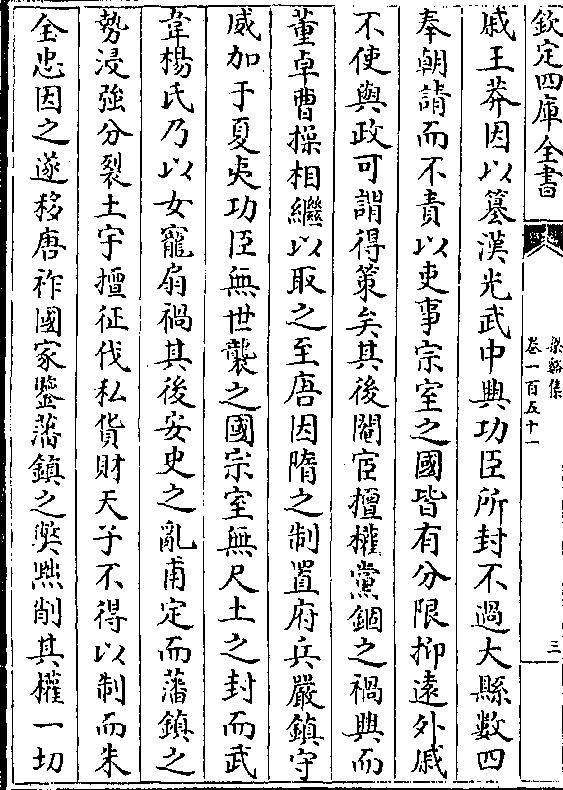 欽定四庫全書
梁谿集
卷一百五十一
三
戚王莽因以簒漢光武中興功臣所封不過大縣數四
奉朝請而不責以吏事宗室之國皆有分限抑遠外戚
不使與政可謂得策矣其後閹宦擅權黨錮之禍興而
董卓曹操相繼以取之至唐因隋之制置府兵嚴鎮守
威加于夏夷功臣無世襲之國宗室無尺土之封而武
韋楊氏乃以女寵扇禍其後安史之亂甫定而藩鎮之
勢浸強分裂土宇擅征伐私貨財天子不得以制而朱
全忠因之遂移唐祚國家鑒藩鎮之弊照削其權一切